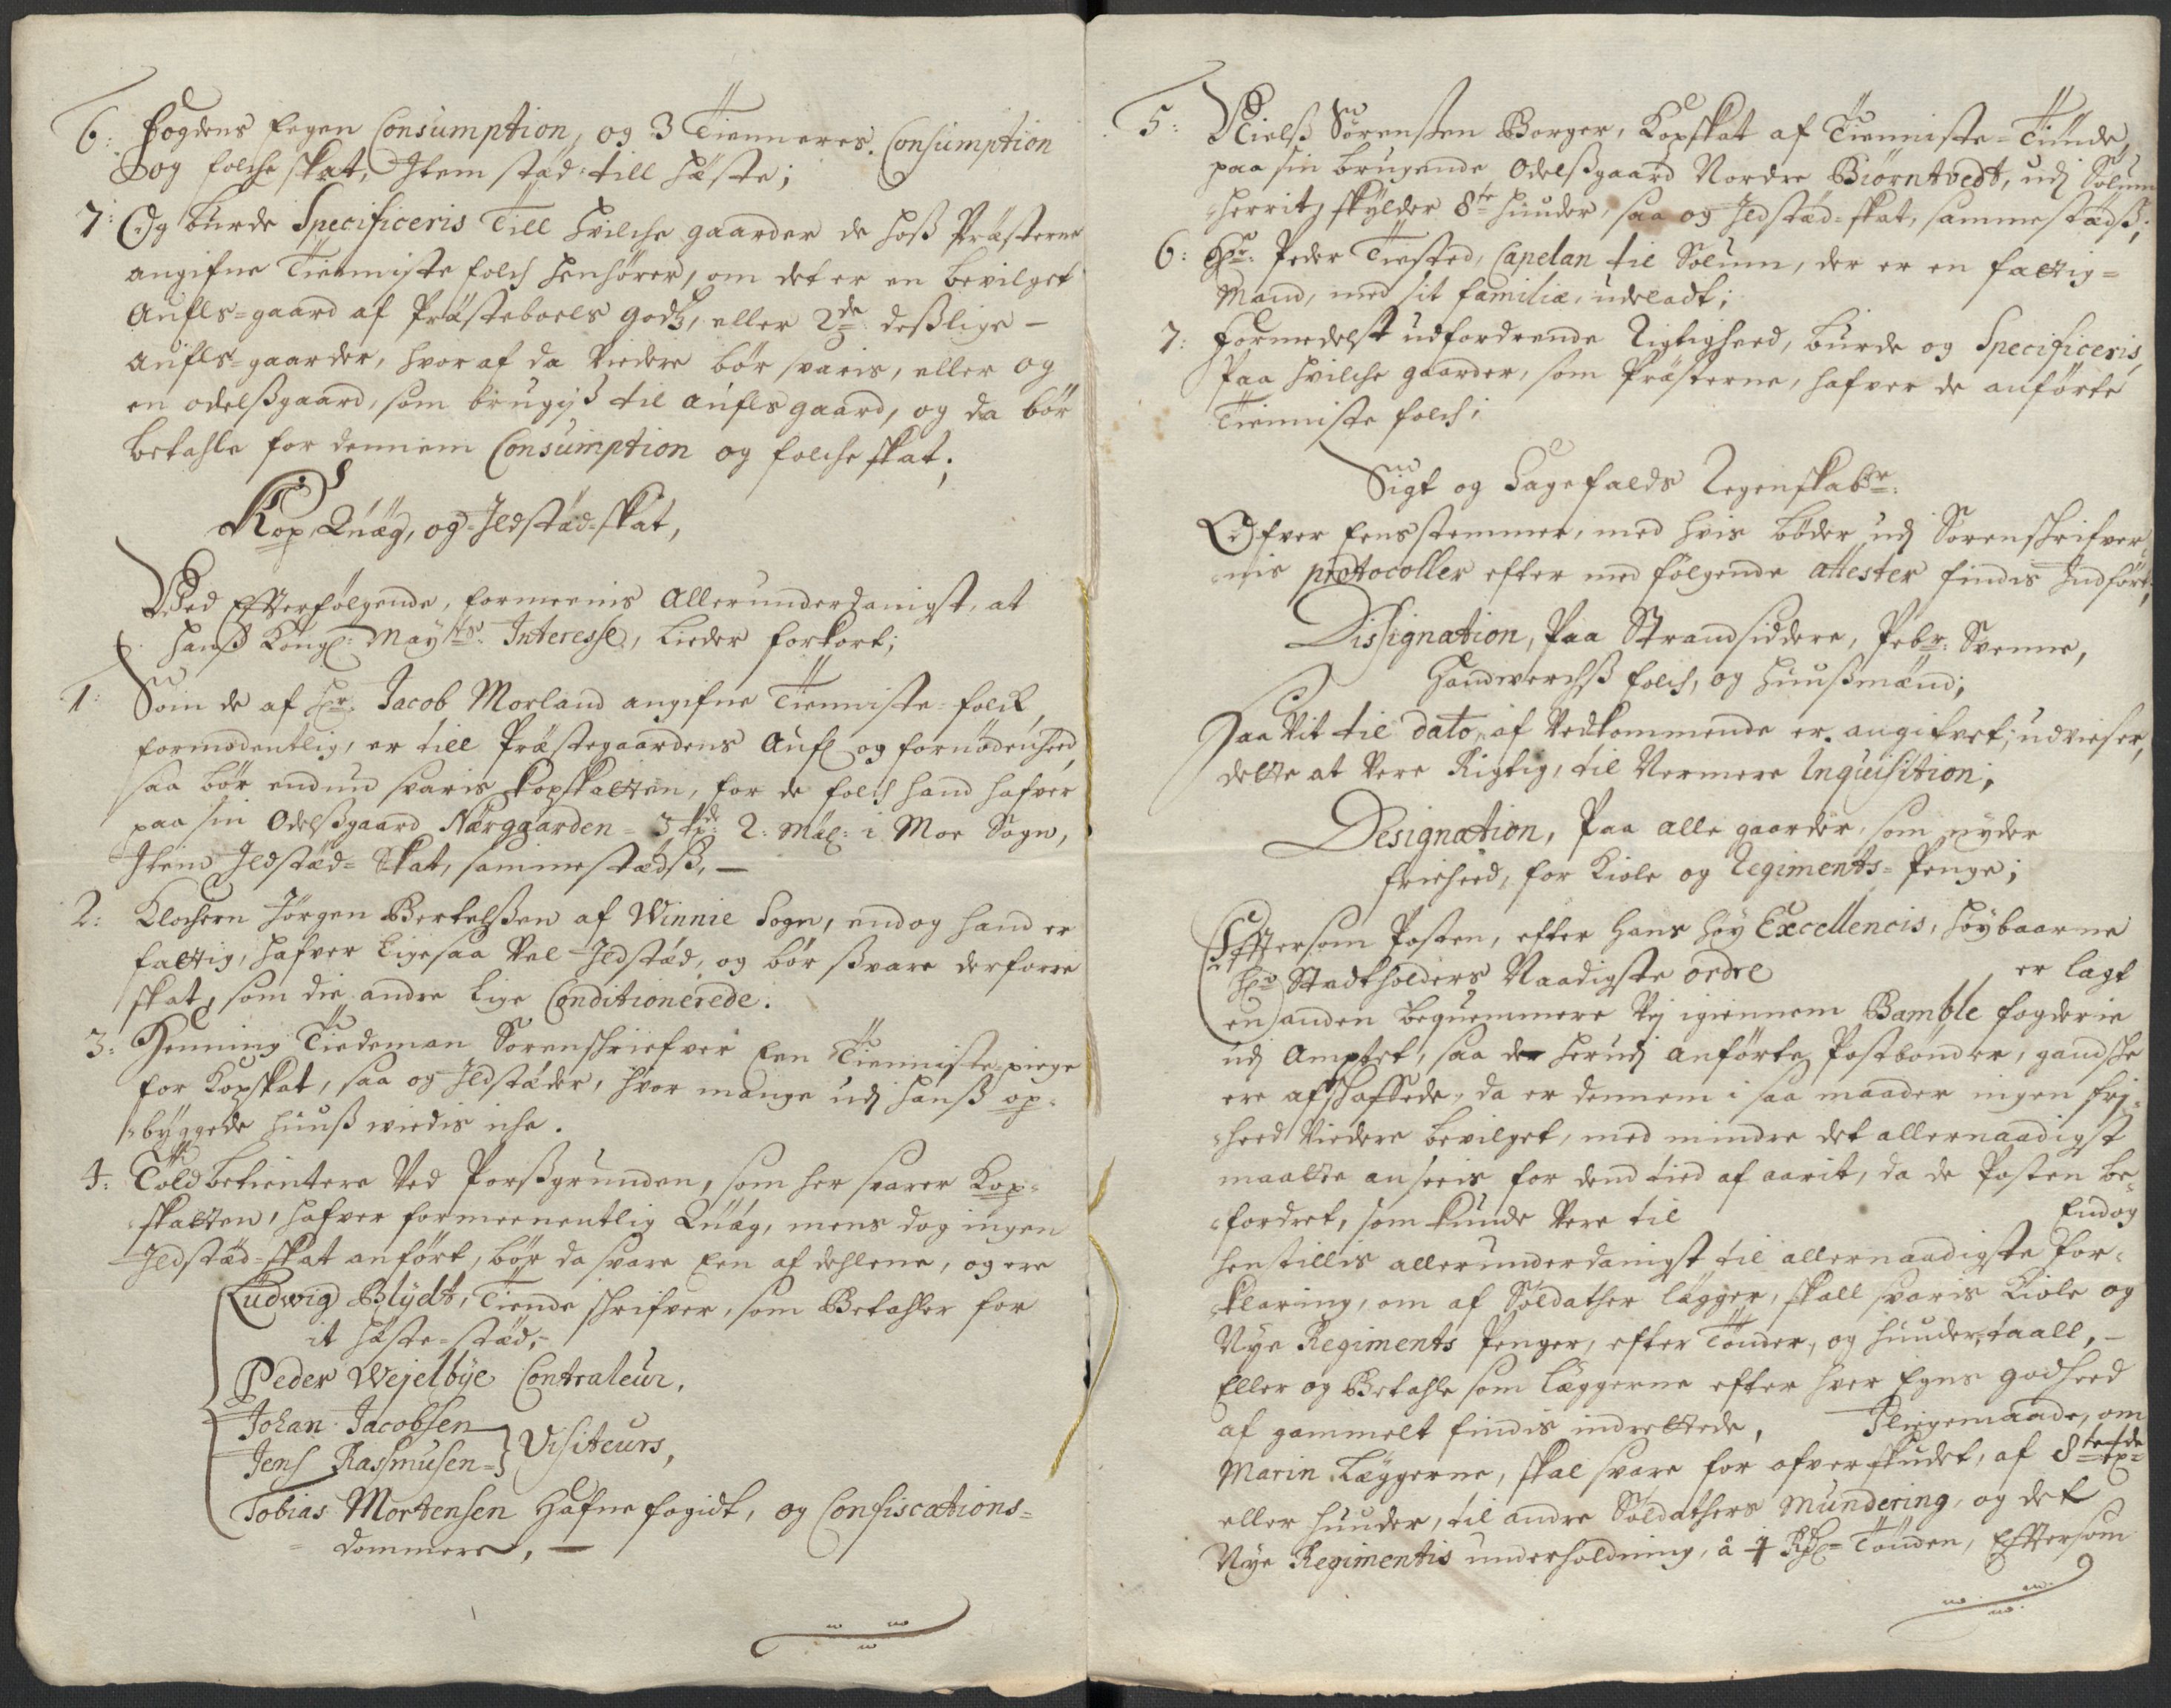 6: Fogdens Eegen Consumption, og 3 Tienneres Consumption
og folche skat, Item stad till Hæste;
7: Og burde Specificeris Till hvilche gaarder de hoß Præsterne
angifne Tienniste folch henhører, om det er en bevilget
Aufls-gaard af Præsteboels godtz, eller 2de deßlige –
aufls-gaarder, hvoraf da videre bør svaris, eller og
en odelßgaard, som brugiß til aufls gaard, og da bør
betahle for dennem Consumption og folche skat;
Kop, Quæg, og Ildstæd-skat,
Ved Efterfølgende, formeenis allerunderdanigst, at
Hanß Kongl: Mayts: Interesse, lieder forkort;
1: Som de af Hr: Jacob Morland angifne Tienniste-folck,
formodentlig, er till Præstegaardens Aufl og fornødenheed,
saa bør endnu svaris kopskatten, for de folch hand hafver
paa sin Odelßgaard Nærgaarden = 3 tpde: 2: mæl: i Moe Sogn,
Item Ildstæd-Skat, sammestædß, –
2: Klochern Jørgen Bertelßen af Winnie Sogn, endog hand er
fattig, hafver ligesaa vel Ildstæd, og bør svare derforre
skat, som die andre lige Conditionerede.
3: Henning Tiedeman Sorenschriefver Een Tienniste-piege
for Kopskat, saa og Ildstæder, hvor mange udj hanß op-
byggede huuß viedis iche.
4: Toldbetientere ved Porßgrunden, som her svarer Kop-
skatten, hafver formeenentlig Quæg, mens dog ingen
Ildstæd-skat anført, bør da svare Een af dehlene, og ere
Ludwig Blydt, Tiende skrifver, som Betahler for
it Hæste-stæd,-
Peder Wejelbye Contraleur,
Johan Jacobsen
Jens Rasmusen } Visiteurs,
Tobias Mortensen Hafne fogidt, og Confiscations-
dommere, –
5: Nielß Sørenßen Borger, Kopskat af Tienniste-Tiunde,
paa sin brugende Odelßgaard Nordre Biørntvedt, udj Solum
herrit, skylder 8te huuder, saa og Ildstæd-skat, sammestædß;
6: Hr: Peder Tiisted, Capelan til Solum, der er en fattig-
Mand, med sit familie, udeladt;
7: Formedelst udfordrende Rigtigheed, burde og Specificeris,
Paa hvilche gaarder, som Præsterne, hafver de anførte
Tienniste folch;
Sigt og Sagefalds Regenskabr:
Ofver Eensstemmer, med hvis bøder udj Sorenschrifver
nis protocoller efter med følgende attester findis Indført;
Dissignation, Paa Strandsiddere, Pebr: Svenne,
Handwerchß folch, og Huußmænd;
Saa vit til dato, af Vedkommende er angifvet, udvieser,
dette at Vere Rigtig, til Nermere Inquisition;
Designation, Paa alle gaarder, som nyder
friheed, for Kiole og Regiments-Penge;
Eftersom Posten, efter Hans Høy Excellencis, Høybaarne
Hr: Stadtholders Naadigste ordre er lagt
en anden beqvemmere Vej igiennem Bamble fogderie
udj Amptet, saa de herudj anførte Postbønder, gandsche
ere afschaffede, da er dennem i saa maader ingen frj-
heed videre bevilget, med mindre det allernaadigst
maatte ansees for dend tied af aarit, da de Posten be-
fordret, som kunde Vere til Endog
henstillis allerunderdanigst til allernaadigste for-
klaring, om af Soldather lægger, skall svaris Kiole og
Nye Regiments Penger, efter Tønder, og huuder, taall, –
Eller og Betahle som læggerne efter hver Egns godheed
af gammelt findis indrettede, Iliigemaade, om
Marin Læggerne, skal svare for ofverskudet, af 8te tpde
eller huuder, til andre Soldathers mundering, og det
Nye Regimentis underholdning, à 4 Rdl Tønden, Eftersom